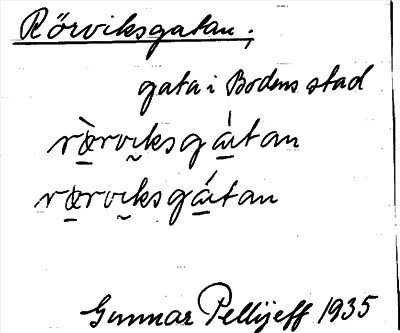 Rörviksgatan;
gata i Bodens stad
rœ̀rviksgátan
rœrviksgátan
Gunnar Pellijeff 1935